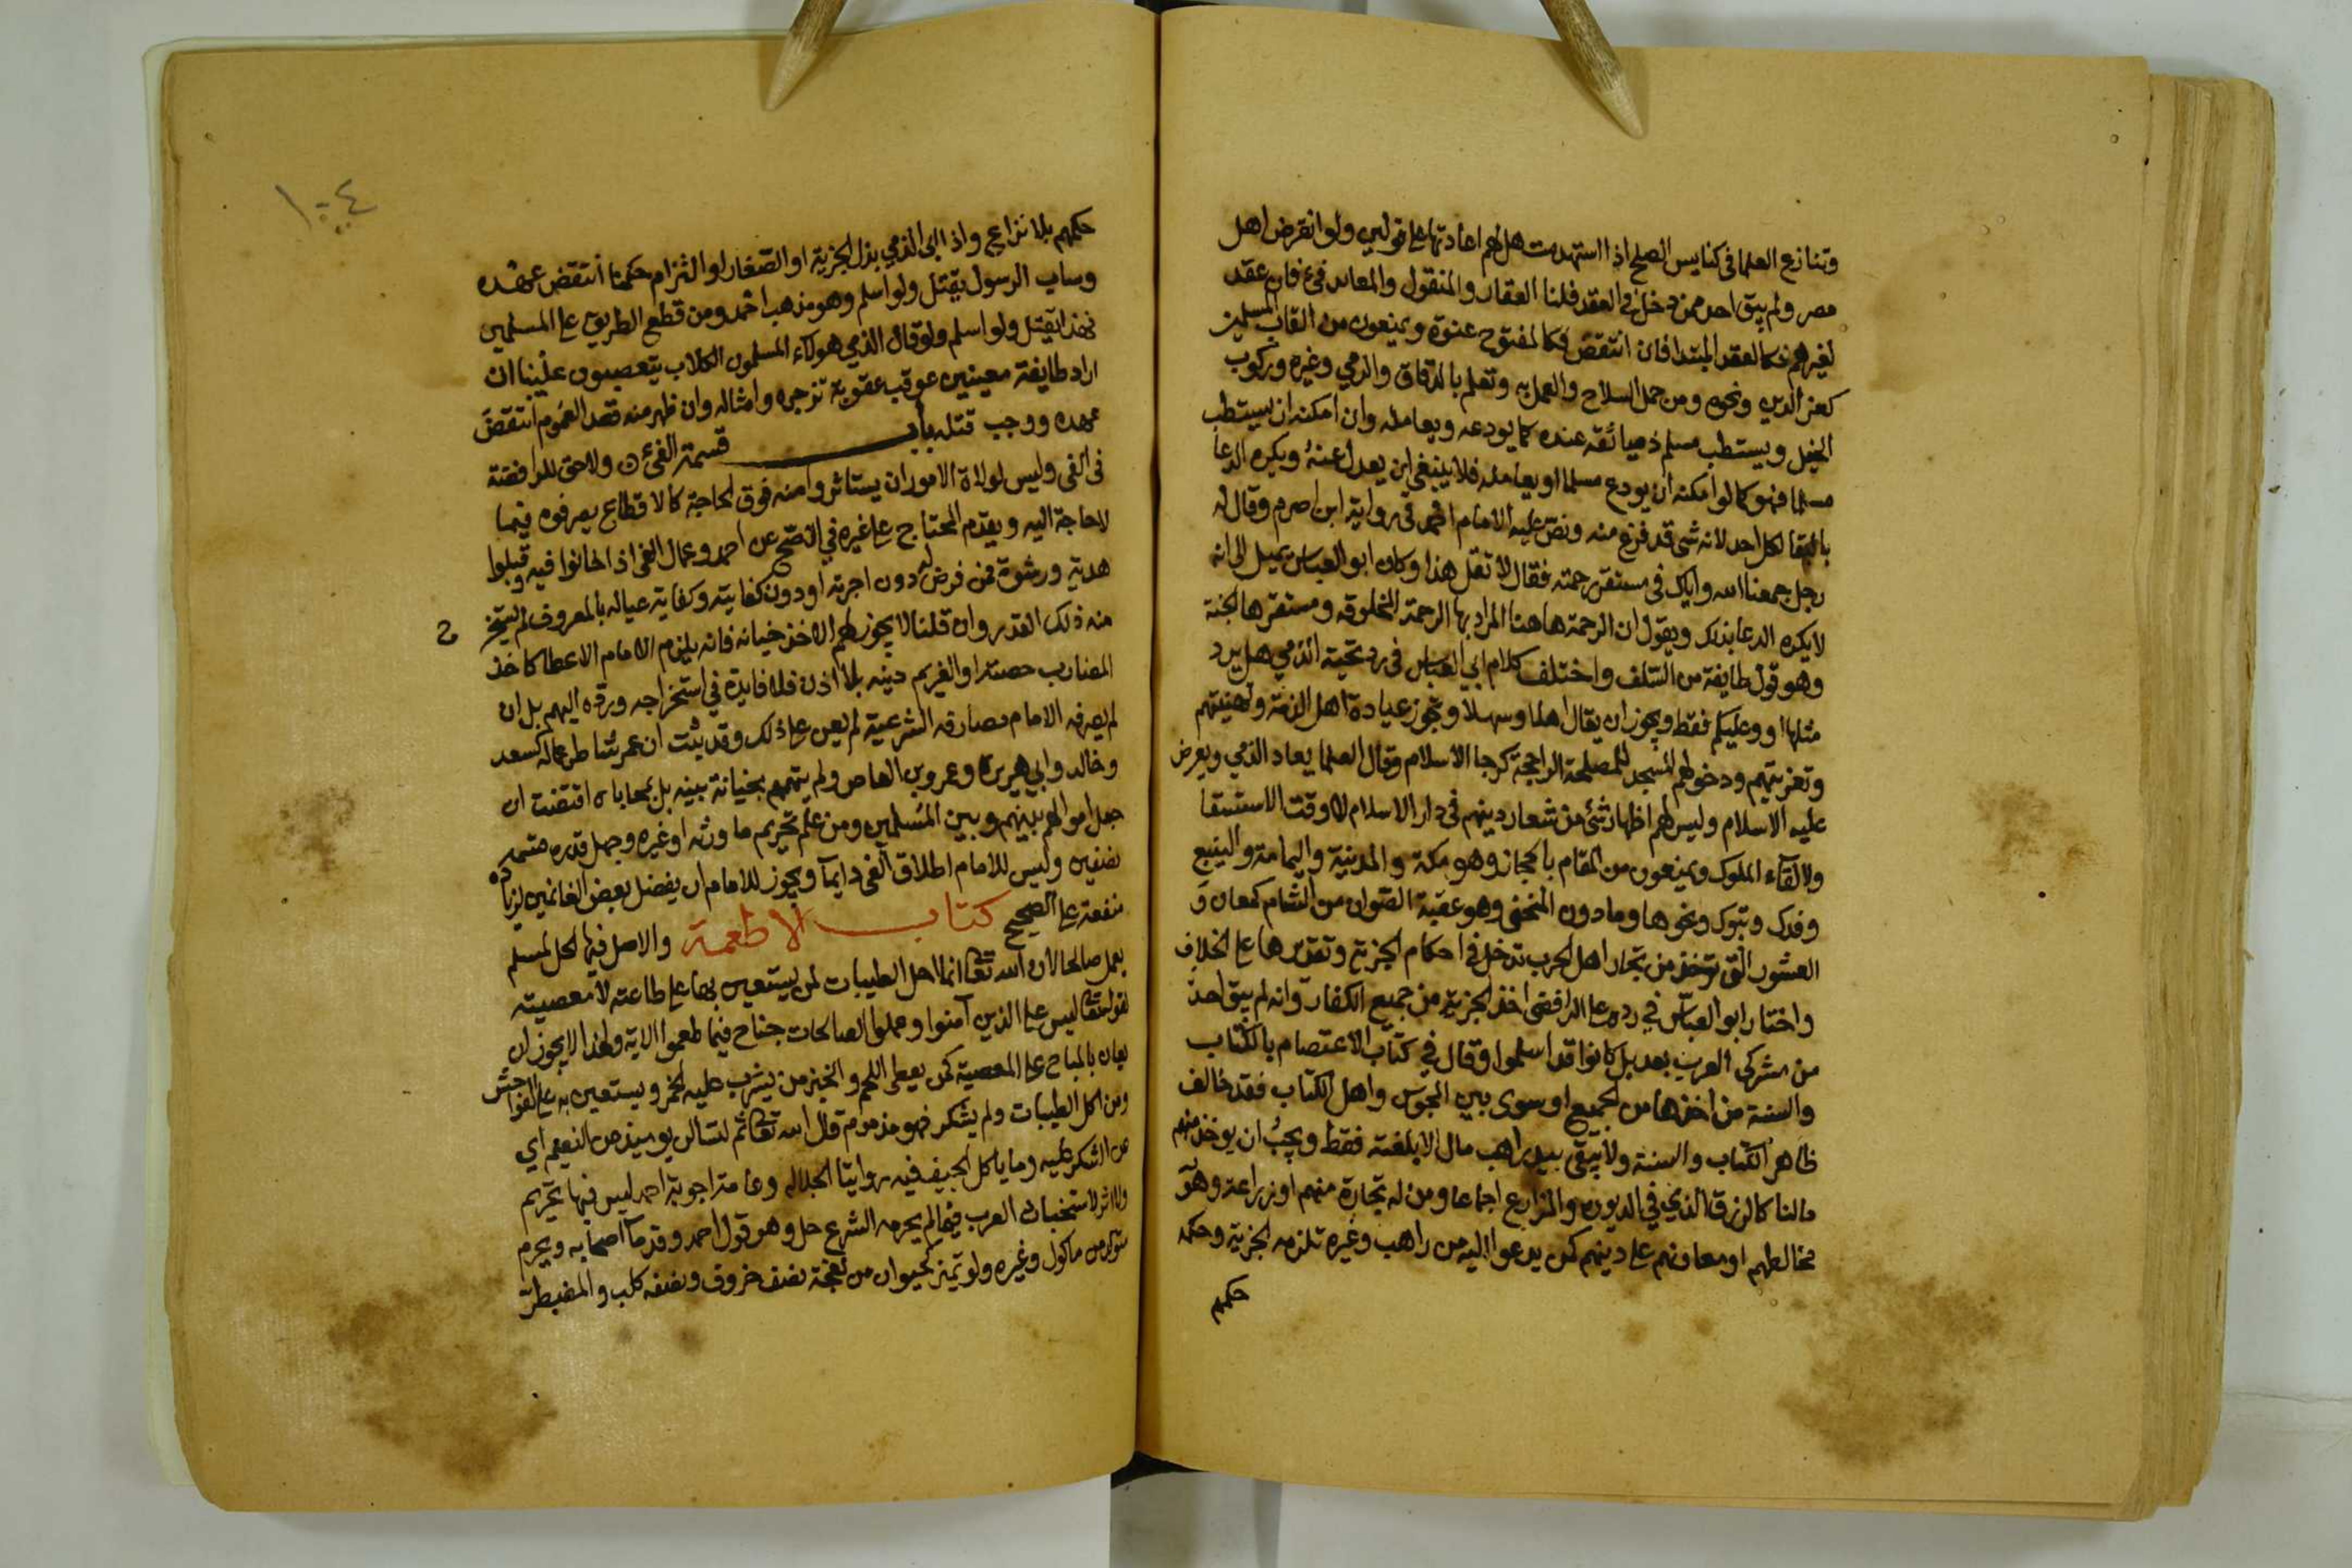 وتنازع العلما في كنايس الصلح اذا استهدمت هل لهم اعادتها على قولين ولو انقرض اهل
مصر ولم يبق احد ممن دخل في العقد فلنا العقار والمنقول والمعابد فئ فان عقد
لغيرهم فكالعقد المبتدا فان انتقض فكالمفتوح عنوة ويمنعون من القاب المسلمين
كعز الدين ونحوه ومن حمل السلاح والعمل به وتعلم بالدقاق والرمي وغيره وركوب
الخيل ويستطب مسلم ذميا ثقه عنده كما يودعه ويعامله وان امكنه ان يستطب
مسلما فهو كما لو امكنه ان يودع مسلما او يعامله فلا ينبغي ان يعدل عنه ويكره الدعا
بالبقا لكل احد لانه شي قد فرغ منه ونص عليه الامام احمد في رواية ابن اصرم وقال له
رجل جمعنا الله واياك في مستقر رحمته فقال لا تقل هذا وكان ابو العباس يميل الى انه
لا يكره الدعا بذلك ويقول ان الرحمة هاهنا المراد بها الرحمة المخلوقه ومستقرها الجنة
وهو قول طايفة من السلف واختلف كلام ابي العباس في رد تحية الذمي هل يرد
مثلها او وعليكم فقط ويجوز ان يقال اهلا وسهلا وتجوز عيادة اهل الذمة وتهنيتهم
وتعزيتهم ودخولهم المسجد للمصلحة الراجحة كرجا الاسلام وقال العلما يعاد الذمي ويعرض
عليه الاسلام وليس لهم اظهار شئ من شعار دينهم في دار الاسلام لا وقت الاستسقا
ولا لقآء الملوك ويمنعون من المقام بالحجاز وهو مكة والمدينة واليمامة والينبع
وفدك وتبوك ونحوها وما دون المنحنى وهو عقبة الصوان من الشام كمعان و
العشور التي تؤخذ من تجار اهل الحرب تدخل في احكام الجزية وتقديرها على الخلاف
واختار ابو العباس في رده على الرافضي اخذ الجزية من جميع الكفار وانه لم يبق احد
من مشركي العرب بعد بل كانوا قد اسلموا وقال في كتاب الاعتصام بالكتاب
والسنة من اخذها من الجميع او سوى بين المجوس واهل الكتاب فقد خالف
ظاهر الكتاب والسنة ولا يبقى بيد راهب مال الا بلغته فقط ويجب ان يوخذ منهم
مالنا كالرزق الذي في الديورة والمزارع اجماعا ومن له تجارة منهم او زراعة وهو
مخالطهم او معاونهم على دينهم كمن يدعوا اليه من راهب وغيره تلزمه الجزية وحكمه
حكمهم
١٠٤
حكمهم بلا نزاع واذا ابى الذمي بذل الجزية او الصغار او التزام حكمنا انتقض عهده
وساب الرسول يقتل ولو اسلم وهو مذهب احمد ومن قطع الطريق على المسلمين
فهذا يقتل ولو اسلم ولو قال الذمي هولاء المسلمون الكلاب يتعصبون علينا ان
اراد طايفة معينين عوقب عقوبة تزجره وامثاله وان ظهر منه قصد العموم انتقض
عهده ووجب قتله باب قسمة الفئ ولا حق للرافضة
في الفي وليس لولاة الامور ان يستاثروا منه فوق الحاجة كالاقطاع يصرفونه فيما
لا حاجة اليه ويقدم المحتاج على غيره في الاصح عن احمد وعمال الفي اذا خانوا فيه وقبلوا
هدية ورشوة فمن فرض له دون اجرته او دون كفايته وكفاية عياله بالمعروف لم يستخرج
منه ذلك القدر وان قلنا لا يجوز لهم الاخذ خيانه فانه يلزم الامام الاعطا كاخذ
المضارب حصته او الغريم دينه بلا اذن فلا فايدة في استخراجه ورده اليهم بل ان
لم يصرفه الامام مصارفه الشرعية لم يعن على ذلك وقد ثبت ان عمر شاطر عماله كسعد
وخالد وابي هريرة وعمرو بن العاص ولم يتهمهم بخيانة بينة بل بمحاباة اقتضت ان
جعل اموالهم بينهم وبين المسلمين ومن علم تحريم ما ورثه او غيره وجهل قدره قسمه
نصفين وليس للامام اطلاق الفي دايما ويجوز للامام ان يفضل بعض الغانمين لزيادة
منفعة على الصحيح كتاب الاطعمة والاصل فيها الحل لمسلم
يعمل صالحا لان الله تعالى انما احل الطيبات لمن يستعين بها على طاعته لا معصيته
لقوله تعالى ليس على الذين آمنوا وعملوا الصالحات جناح فيما طعموا الاية ولهذا لا يجوز ان
يعان بالمباح على المعصية كمن يعطي اللحم والخبز من يشرب عليه الخمر ويستعين به على الفواحش
ومن اكل الطيبات ولم يشكر فهو مذموم قال الله تعالى ثم لتسالن يوميذ عن النعيم اي
عن الشكر عليه وما ياكل الجيف فيه روايتا الجلاله وعامة اجوبة احمد ليس فيها تحريم
ولا اثر لاستخباث العرب فما لم يحرمه الشرع حل وهو قول احمد وقدما اصحابه ويحرم
متولد من ماكول وغيره ولو تميز كحيوان من نعجة نصف خروف ونصفه كلب والمضطر